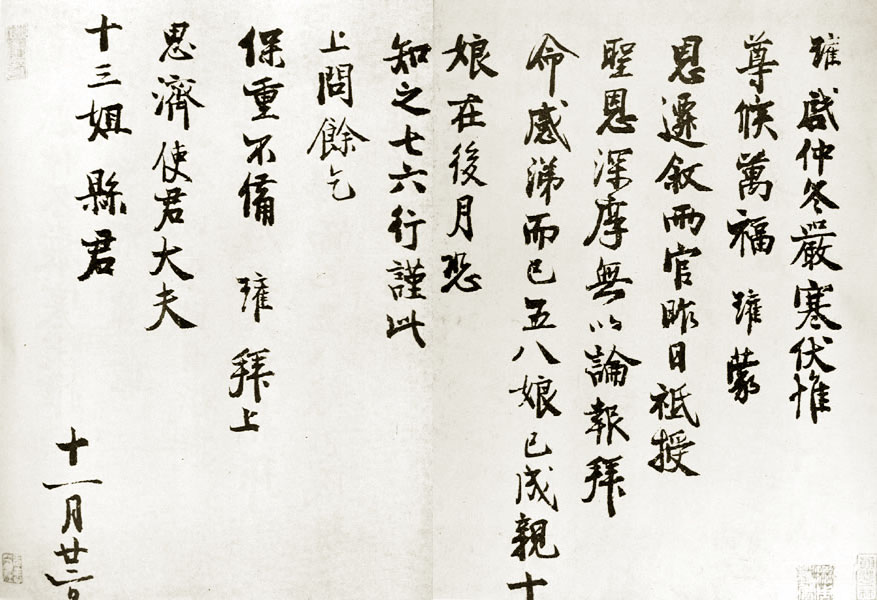 啟仲冬嚴寒伏惟
尊候萬福 蒙
恩遷敘兩官昨日祗授
聖恩深摩無以論報拜
命感涕而已五八娘已成親十
娘在後月恐
知之七六行謹此
上問餘乞
保重不備 拜上
思濟使君大夫
十三姐縣君
十一月廿二日